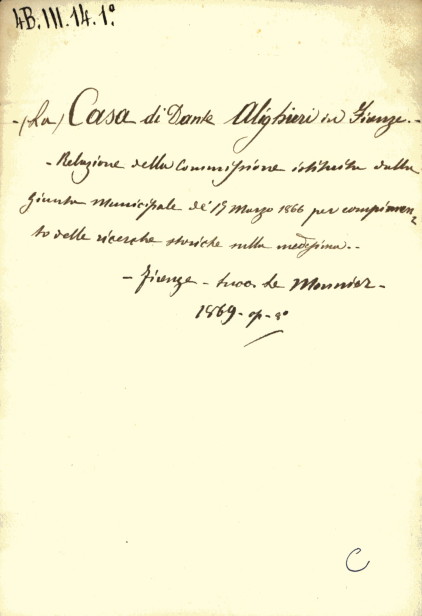 4B.III.14.1º
-(La) Casa di Dante Alighieri in Firenze.-
- Relazione della Commissione istituita dalla
Giunta Municipale de' 17 Marzo 1866 per compimen-
to delle ricerche storiche sulla medesima.-
- Firenze - succ. Le Monnier -
1869 - op - 8º
C